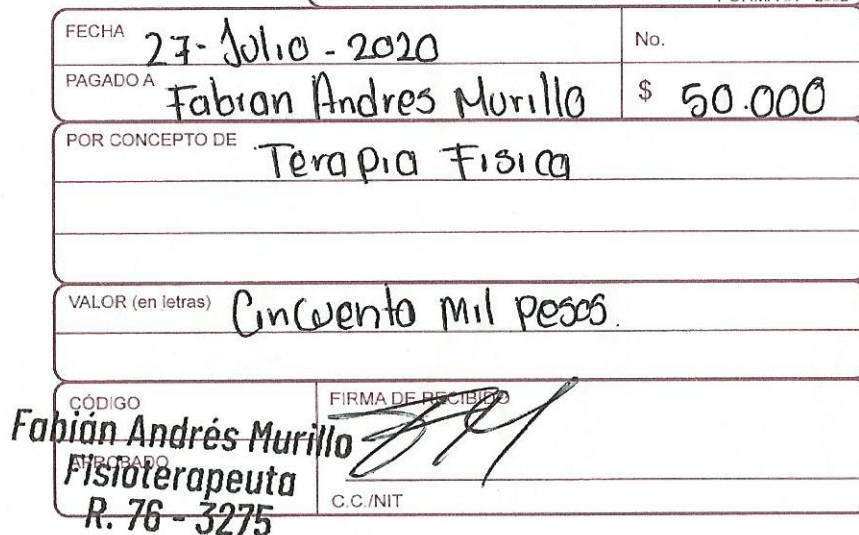 FECHA 27-Julio-2020 No.
PAGADO A Fabian Andres Murillo $ 50.000
POR CONCEPTO DE Terapia Fisica
VALOR (en letras) Cincuenta Mil pesos.
CÓDIGO FIRMA DE RECIBIDO
Fabián Andrés Murillo
APROBADO
Fisioterapeuta
C.C./NIT
R. 76 - 3275